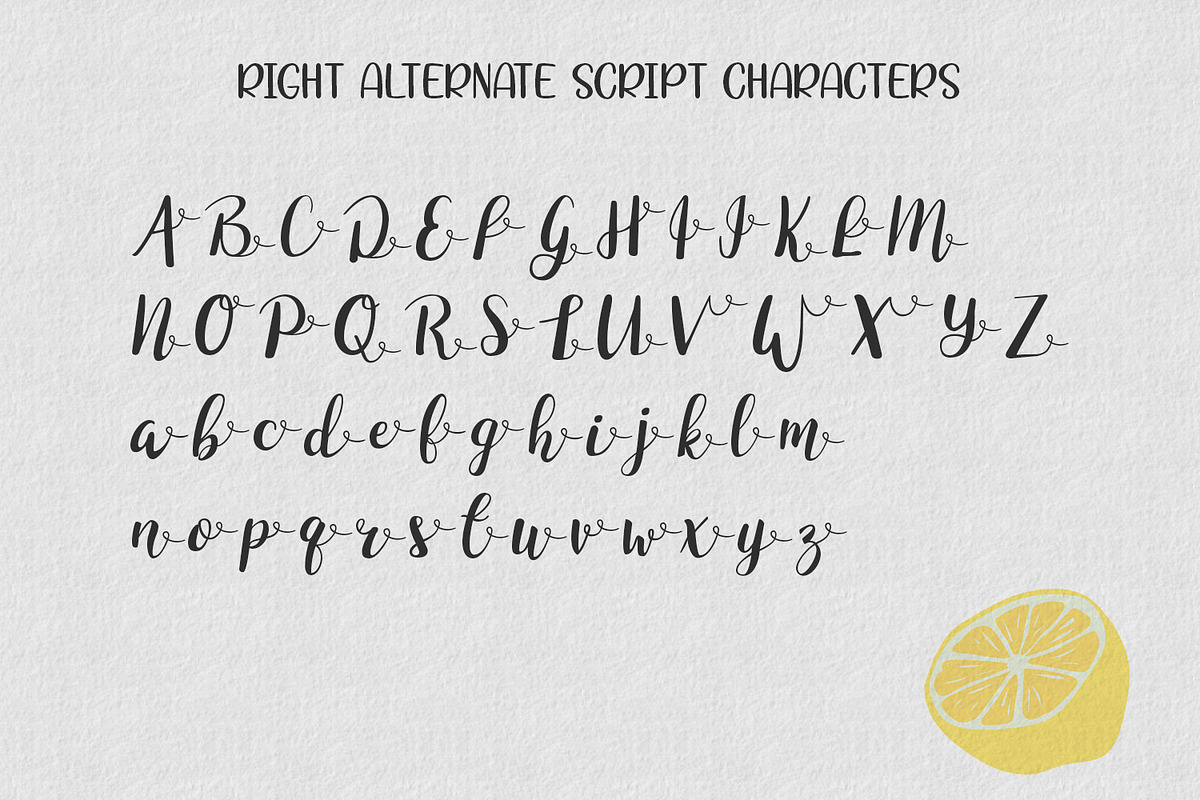 RIGHT ALTERNATE SCRIPT CHARACTERS
A B C D E F G H I J K L M
N O P Q R S T U V W X Y Z
a b c d e f g h i j k l m
n o p q r s t u v w x y z